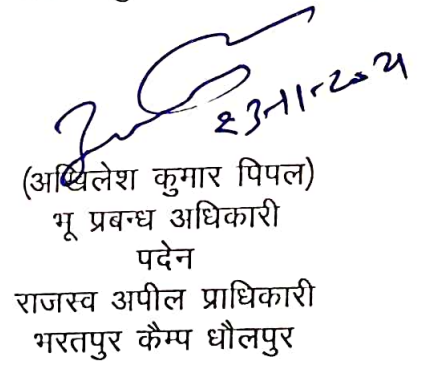 23-11-2021
(अखिलेश कुमार पिपल)
भू प्रबन्ध अधिकारी
पदेन
राजस्व अपील प्राधिकारी
भरतपुर कैम्प धौलपुर